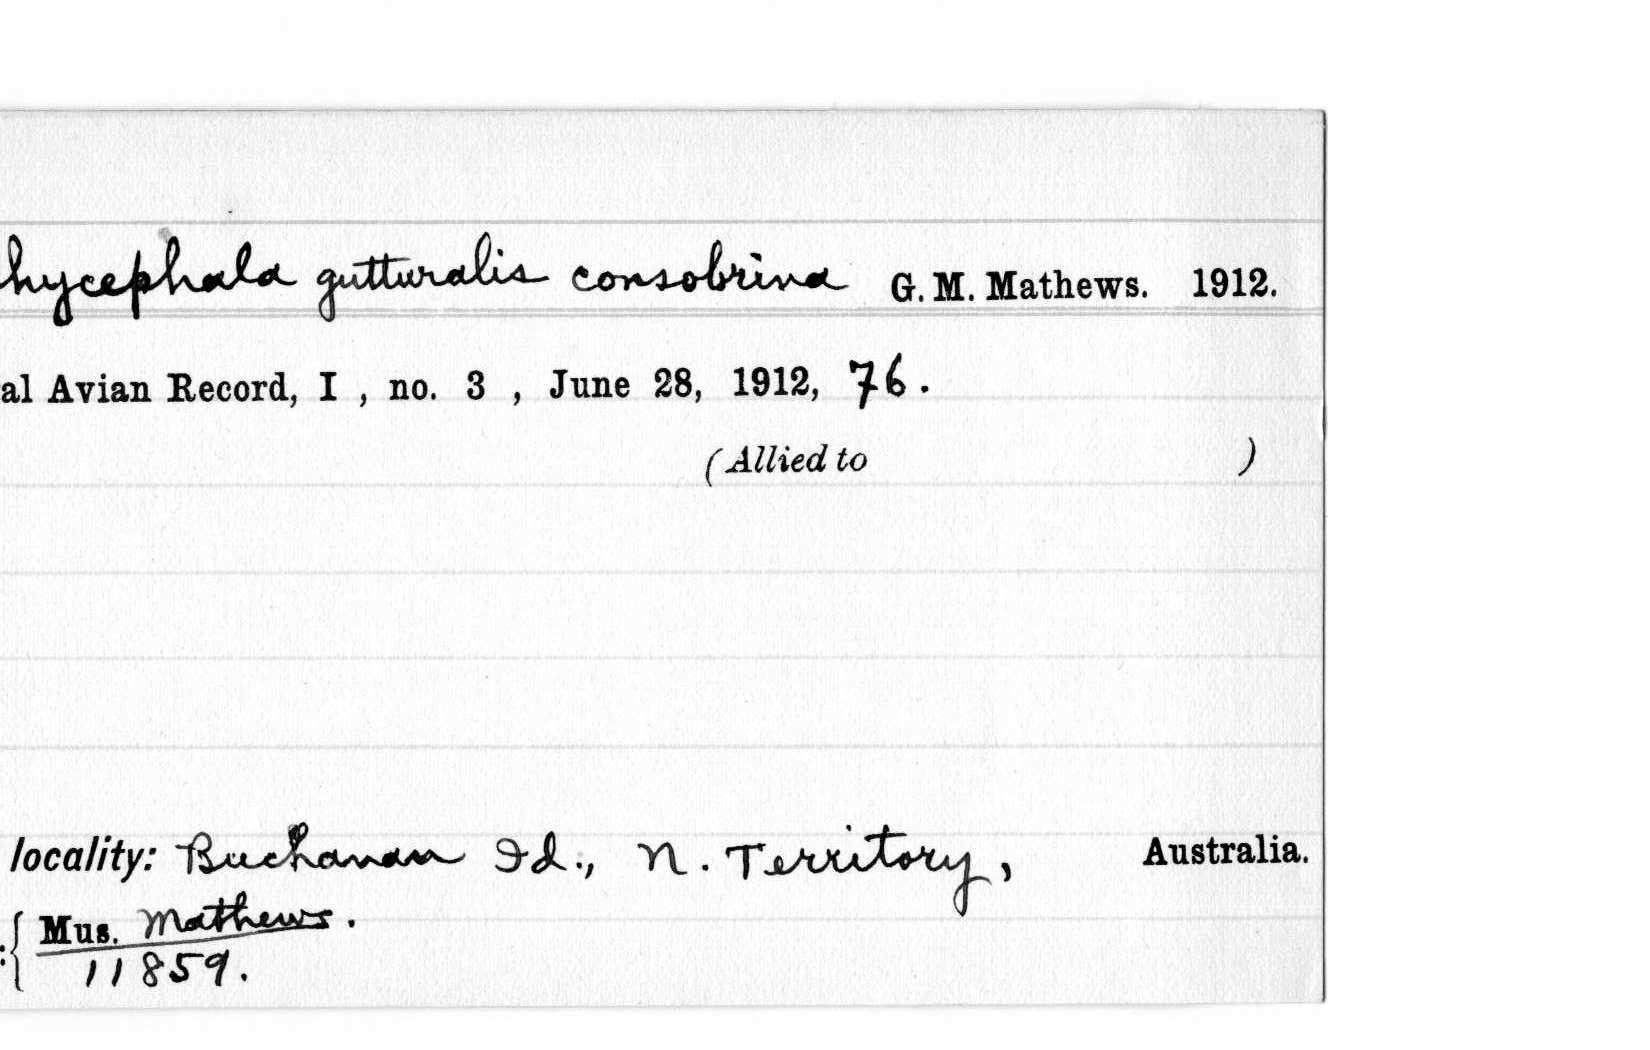 hycephala gutturalis consobrina G. M. Mathews. 1912.
al Avian Record, I , no. 3 , June 28, 1912, 76.
(Allied to )
locality: Buchanan Id., N. Territory, Australia.
:{ Mus. Mathews.
11859.